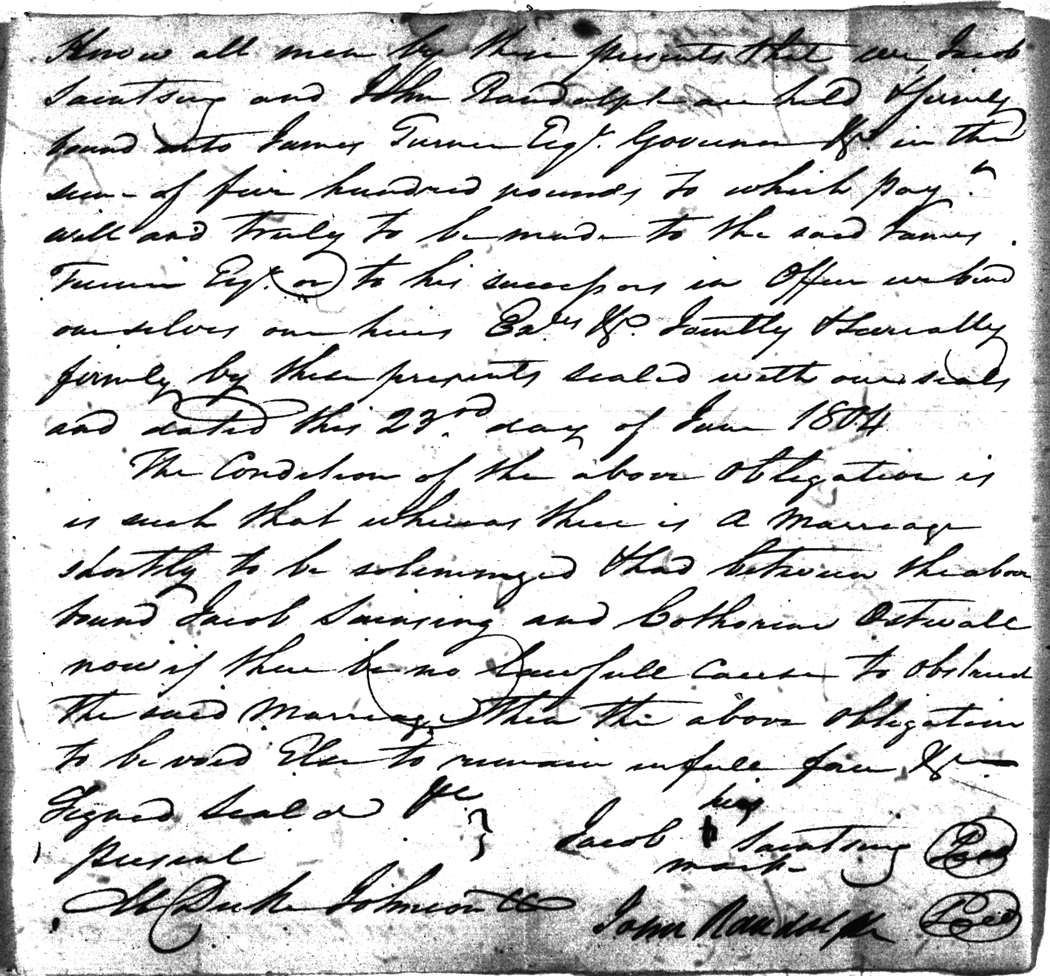 Know all men by these presents that we Jacob
Saintsing and John Randolph are held & firmly
bound unto James Turner Esqr. Governor &c in the
sum of five hundred pounds to which paymt
will and truly to be made to the said James
Turner Esqr. or to his successors in Office we bind
ourselves our heirs Exrs &c. Jointly & Severally
firmly by these presents sealed with our seals
and dated this 23rd day of June 1804
The Condition of the above Obligation is
is such that whereas there is a Marriage
shortly to be solemnized & had between the above
bound Jacob Sainsing and Catharine Ostwalt
now if there be no lawfull cause to obstruct
the said Marriage then the above Obligation
to be void Else to remain in full force &c
Signed Seald &c
present
his
Jacob Saintsing Seal
mark
M Duke Johnson
John Randolph Seal